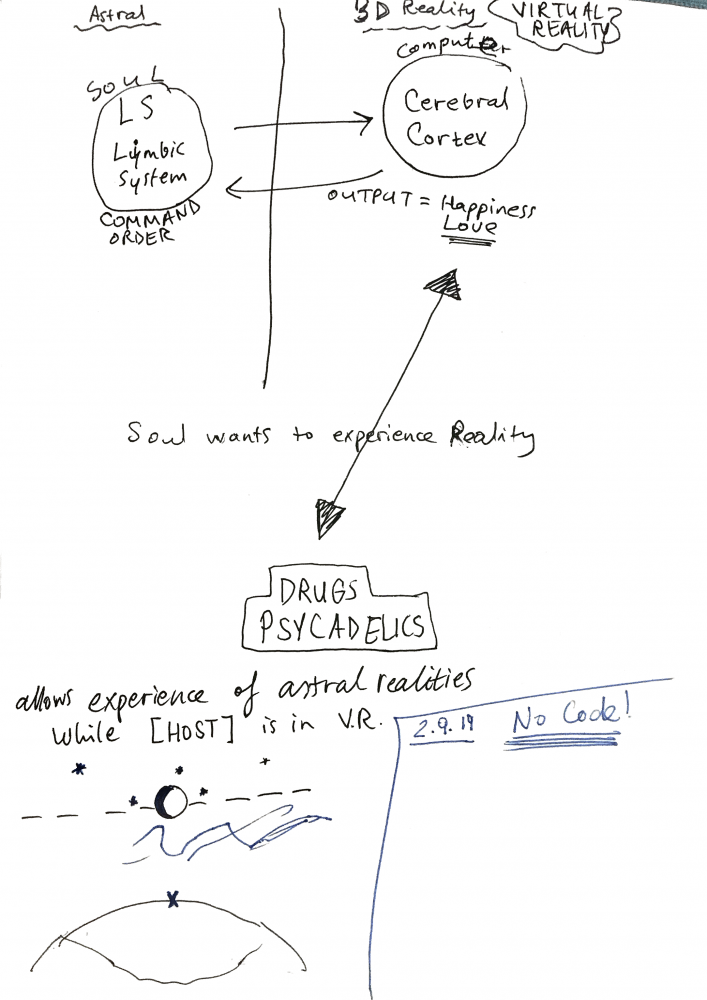 Astral
3D Reality
VIRTUAL
REALITY
Computer
SOUL
LS
Lymbic
System
COMMAND
ORDER
Cerebral
Cortex
OUTPUT = Happiness
Love
Soul wants to experience Reality
DRUGS
PSYCADELICS
allows experience of astral realities
while [HOST] is in V.R.
2.9.19 No Code!
X